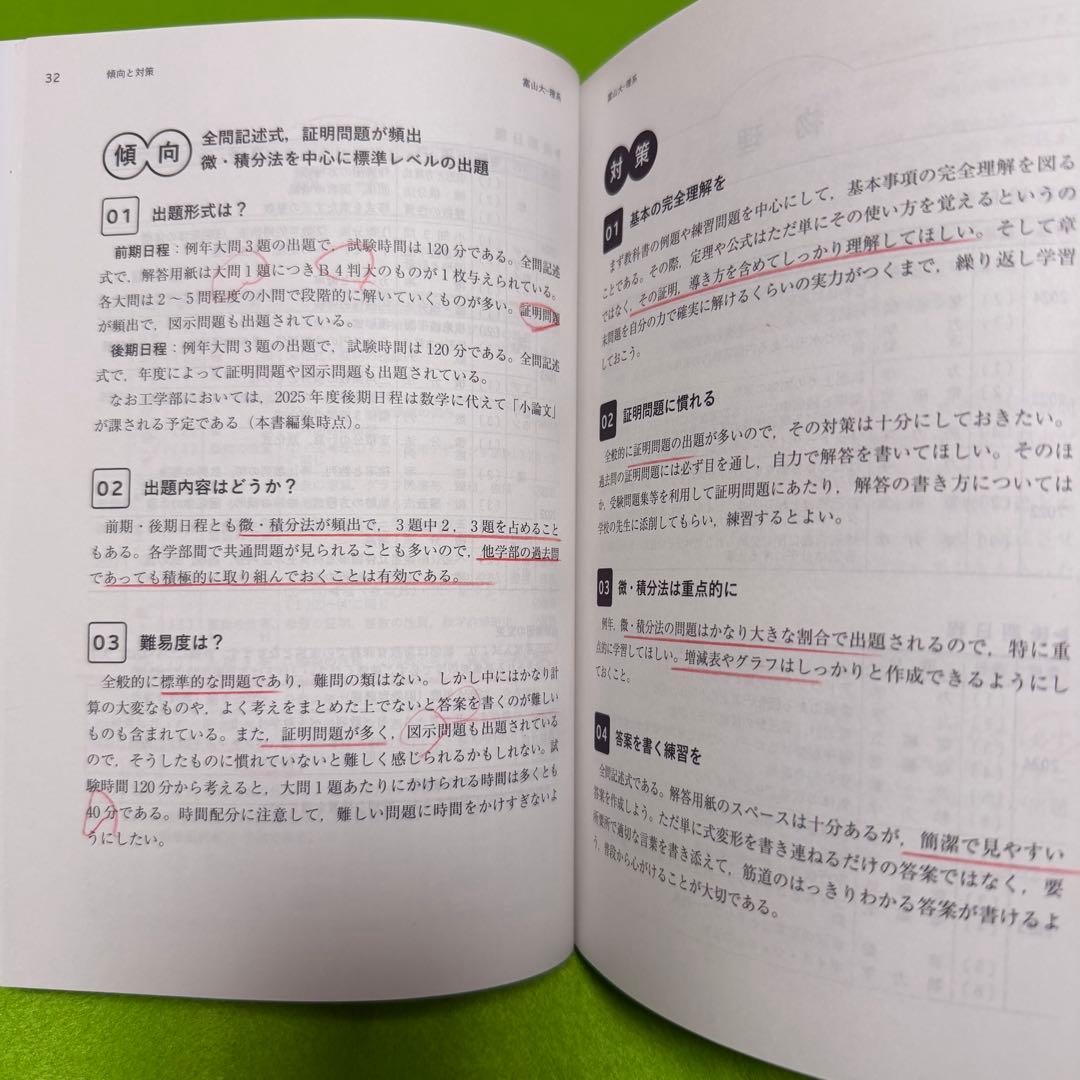 32
傾向と対策
富山大-理系
傾向
全問記述式，証明問題が頻出
微・積分法を中心に標準レベルの出題
01 出題形式は？
前期日程：例年大問3題の出題で，試験時間は120分である。全問記述
式で，解答用紙は大問1題につきB4判大のものが1枚与えられている。
各大問は2～5問程度の小問で段階的に解いていくものが多い。証明問題
が頻出で，図示問題も出題されている。
後期日程：例年大問3題の出題で，試験時間は120分である。全問記述
式で，年度によって証明問題や図示問題も出題されている。
なお工学部においては，2025年度後期日程は数学に代えて「小論文」
が課される予定である（本書編集時点）。
02 出題内容はどうか？
前期・後期日程とも微・積分法が頻出で，3題中2，3題を占めること
もある。各学部間で共通問題が見られることも多いので，他学部の過去問
であっても積極的に取り組んでおくことは有効である。
03 難易度は？
全般的に標準的な問題であり，難問の類はない。しかし中にはかなり計
算の大変なものや，よく考えをまとめた上でないと答案を書くのが難しい
ものも含まれている。また，証明問題が多く，図示問題も出題されている
ので，そうしたものに慣れていないと難しく感じられるかもしれない。試
験時間120分から考えると，大問1題あたりにかけられる時間は多くとも
40分である。時間配分に注意して，難しい問題に時間をかけすぎないよ
うにしたい。
富山大-理系
対策
01 基本の完全理解を
まず教科書の例題や練習問題を中心にして，基本事項の完全理解を図る
ことである。その際，定理や公式はただ単にその使い方を覚えるというの
ではなく，その証明，導き方を含めてしっかり理解してほしい。そして章
末問題を自分の力で確実に解けるくらいの実力がつくまで，繰り返し学習
しておこう。
02 証明問題に慣れる
全般的に証明問題の出題が多いので，その対策は十分にしておきたい。
過去問の証明問題には必ず目を通し，自力で解答を書いてほしい。そのほ
か，受験問題集等を利用して証明問題にあたり，解答の書き方については
学校の先生に添削してもらい，練習するとよい。
03 微・積分法は重点的に
例年，微・積分法の問題はかなり大きな割合で出題されるので，特に重
点的に学習してほしい。増減表やグラフはしっかりと作成できるようにし
ておくこと。
04 答案を書く練習を
全問記述式である。解答用紙のスペースは十分あるが，簡潔で見やすい
答案を作成しよう。ただ単に式変形を書き連ねるだけの答案ではなく，要
所要所で適切な言葉を書き添えて，筋道のはっきりわかる答案が書けるよ
う，普段から心がけることが大切である。